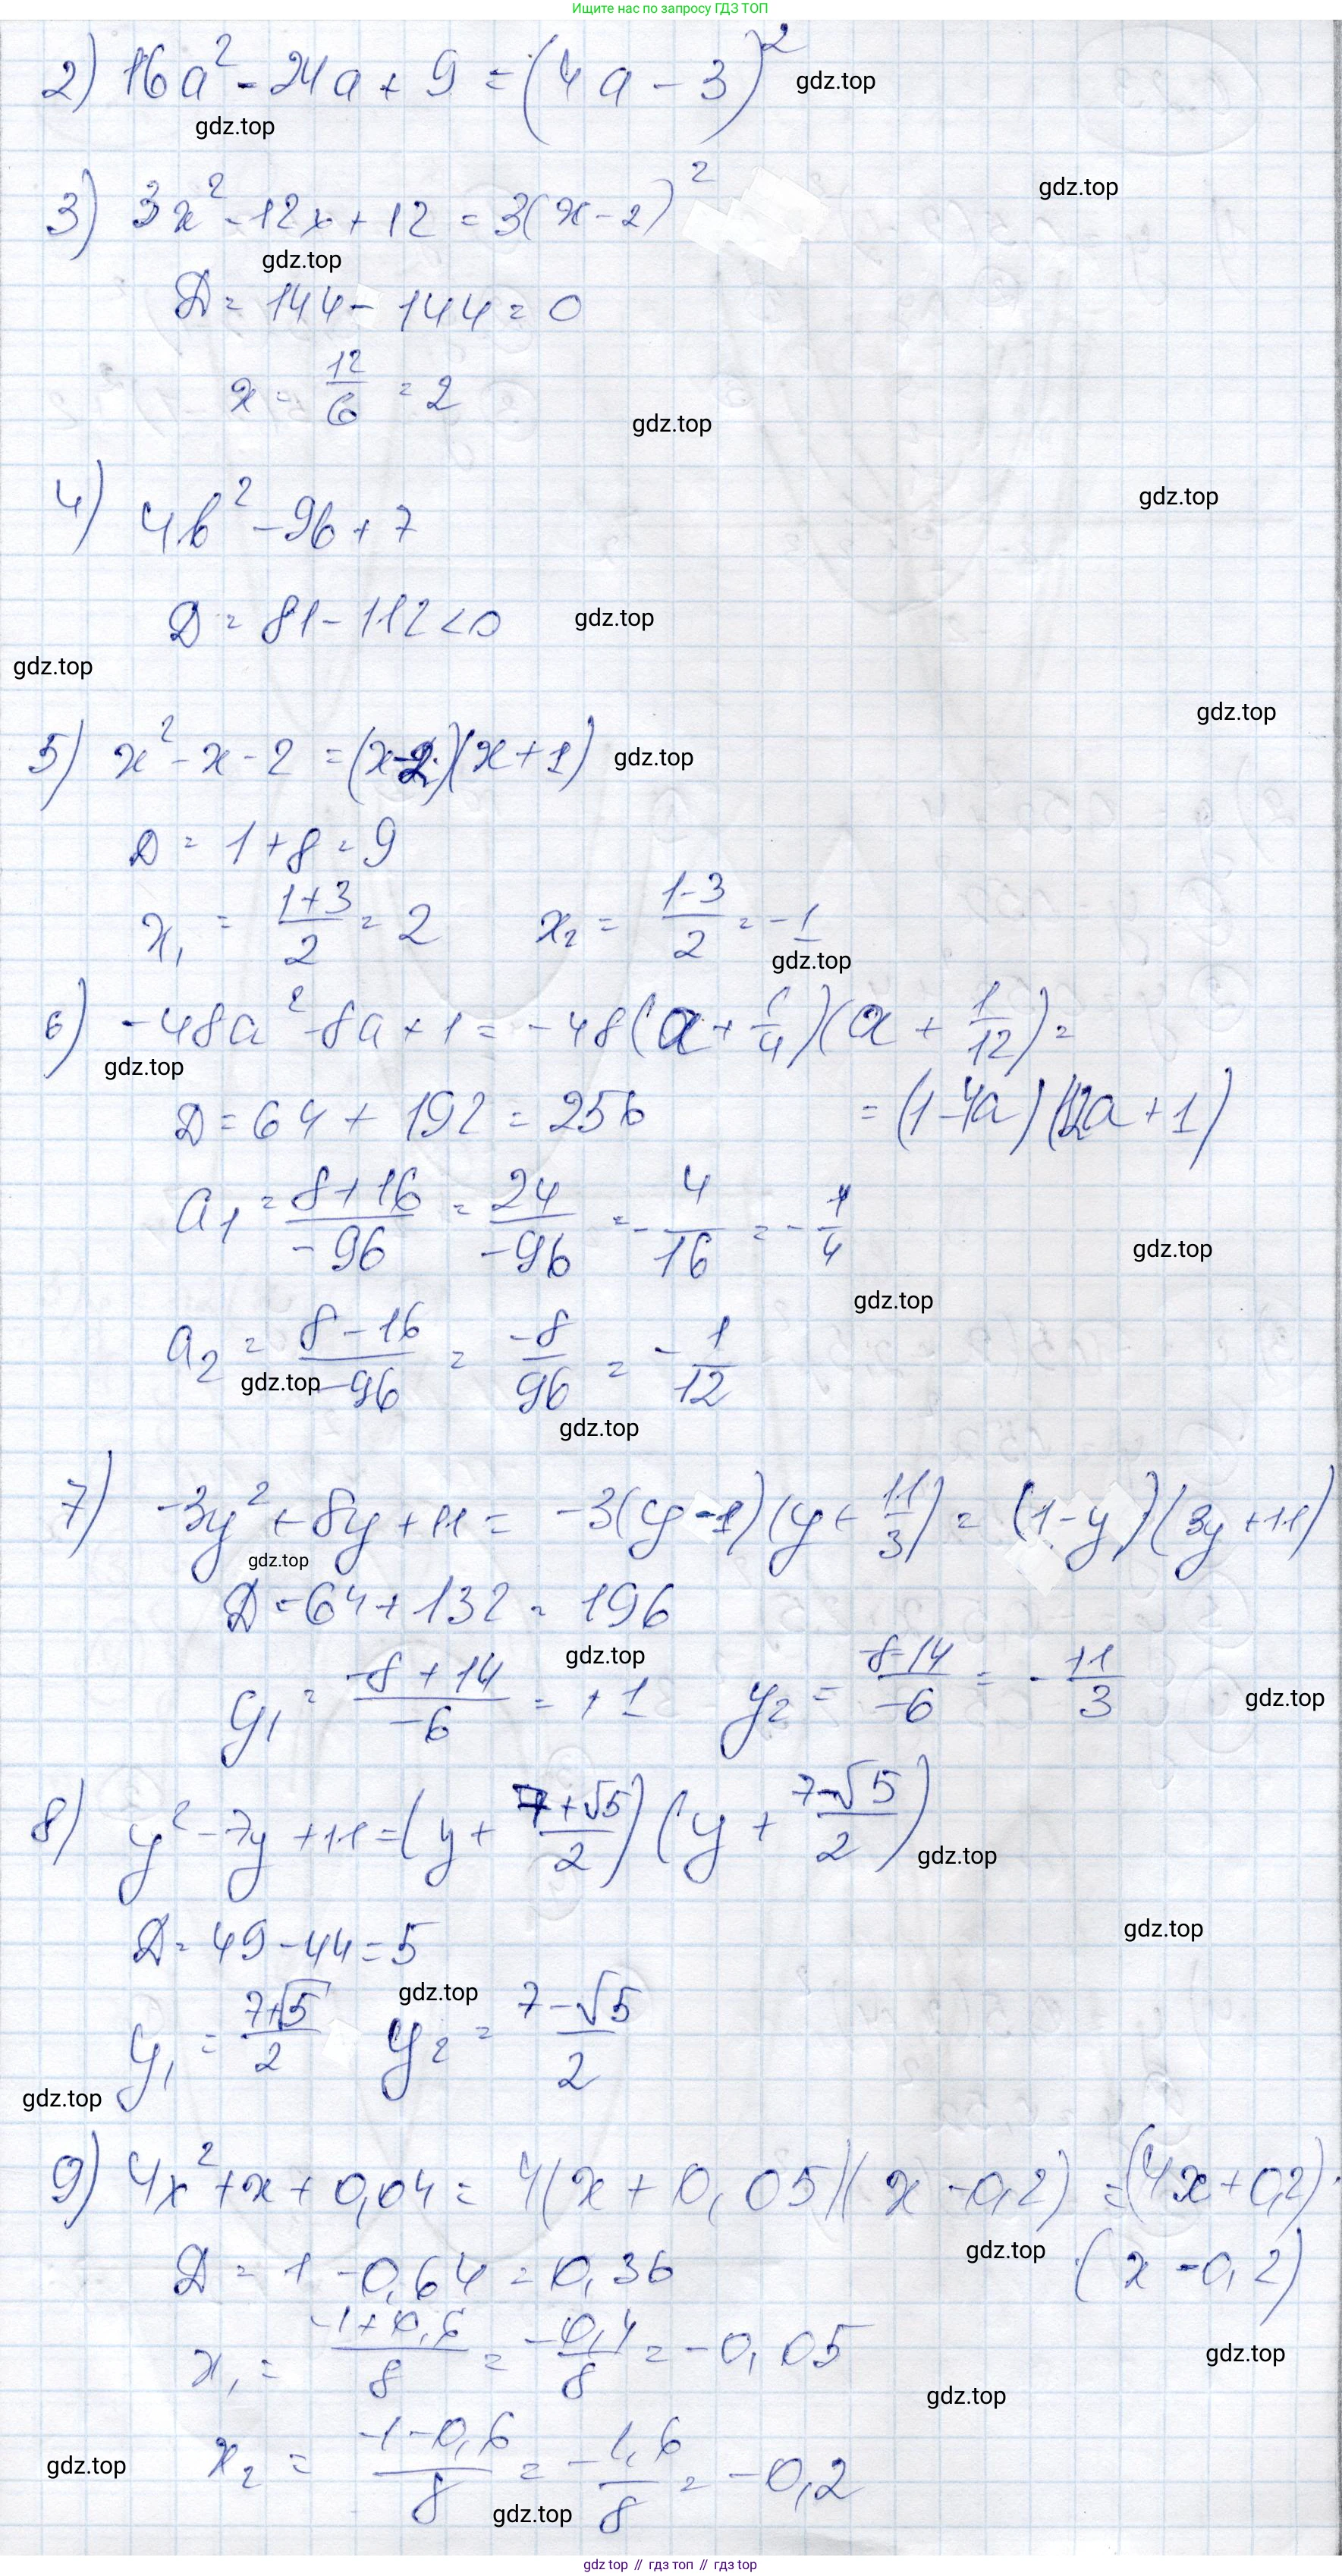 Ищите нас по запросу ГДЗ ТОП
2) 16a² - 24a + 9 = (4a - 3)² gdz.top
gdz.top
3) 3x² - 12x + 12 = 3(x - 2)² gdz.top
gdz.top
D = 144 - 144 = 0
x = 12/6 = 2
gdz.top
gdz.top
4) 4b² - 9b + 7
D = 81 - 112 < 0 gdz.top
gdz.top
gdz.top
5) x² - x - 2 = (x - 2)(x + 1) gdz.top
D = 1 + 8 = 9
x₁ = (1+3)/2 = 2 x₂ = (1-3)/2 = -1
gdz.top
6) -48a² - 8a + 1 = -48(a + 1/4)(a + 1/12) =
gdz.top
D = 64 + 192 = 256 = (1 - 4a)(12a + 1)
a₁ = (8+16)/(-96) = 24/(-96) = -4/16 = -1/4
gdz.top
gdz.top
a₂ = (8-16)/(-96) = -8/96 = -1/12
gdz.top
gdz.top
7) -3y² + 8y + 11 = -3(y - 1)(y + 11/3) = (1 - y)(3y + 11)
gdz.top
D = 64 + 132 = 196
gdz.top
y₁ = (-8+14)/(-6) = +1 y₂ = (-8-14)/(-6) = -11/3
gdz.top
8) y² - 7y + 11 = (y + (7+√5)/2)(y + (7-√5)/2)
gdz.top
D = 49 - 44 = 5
gdz.top
gdz.top
y₁ = (7+√5)/2 y₂ = (7-√5)/2
gdz.top
9) 4x² + x + 0,04 = 4(x + 0,05)(x - 0,2) = (4x + 0,2)·
gdz.top
D = 1 - 0,64 = 0,36 ·(x - 0,2)
x₁ = (-1+0,6)/8 = -0,4/8 = -0,05
gdz.top
gdz.top
x₂ = (-1-0,6)/8 = -1,6/8 = -0,2
gdz.top
gdz.top
gdz top // гдз топ // гдз top